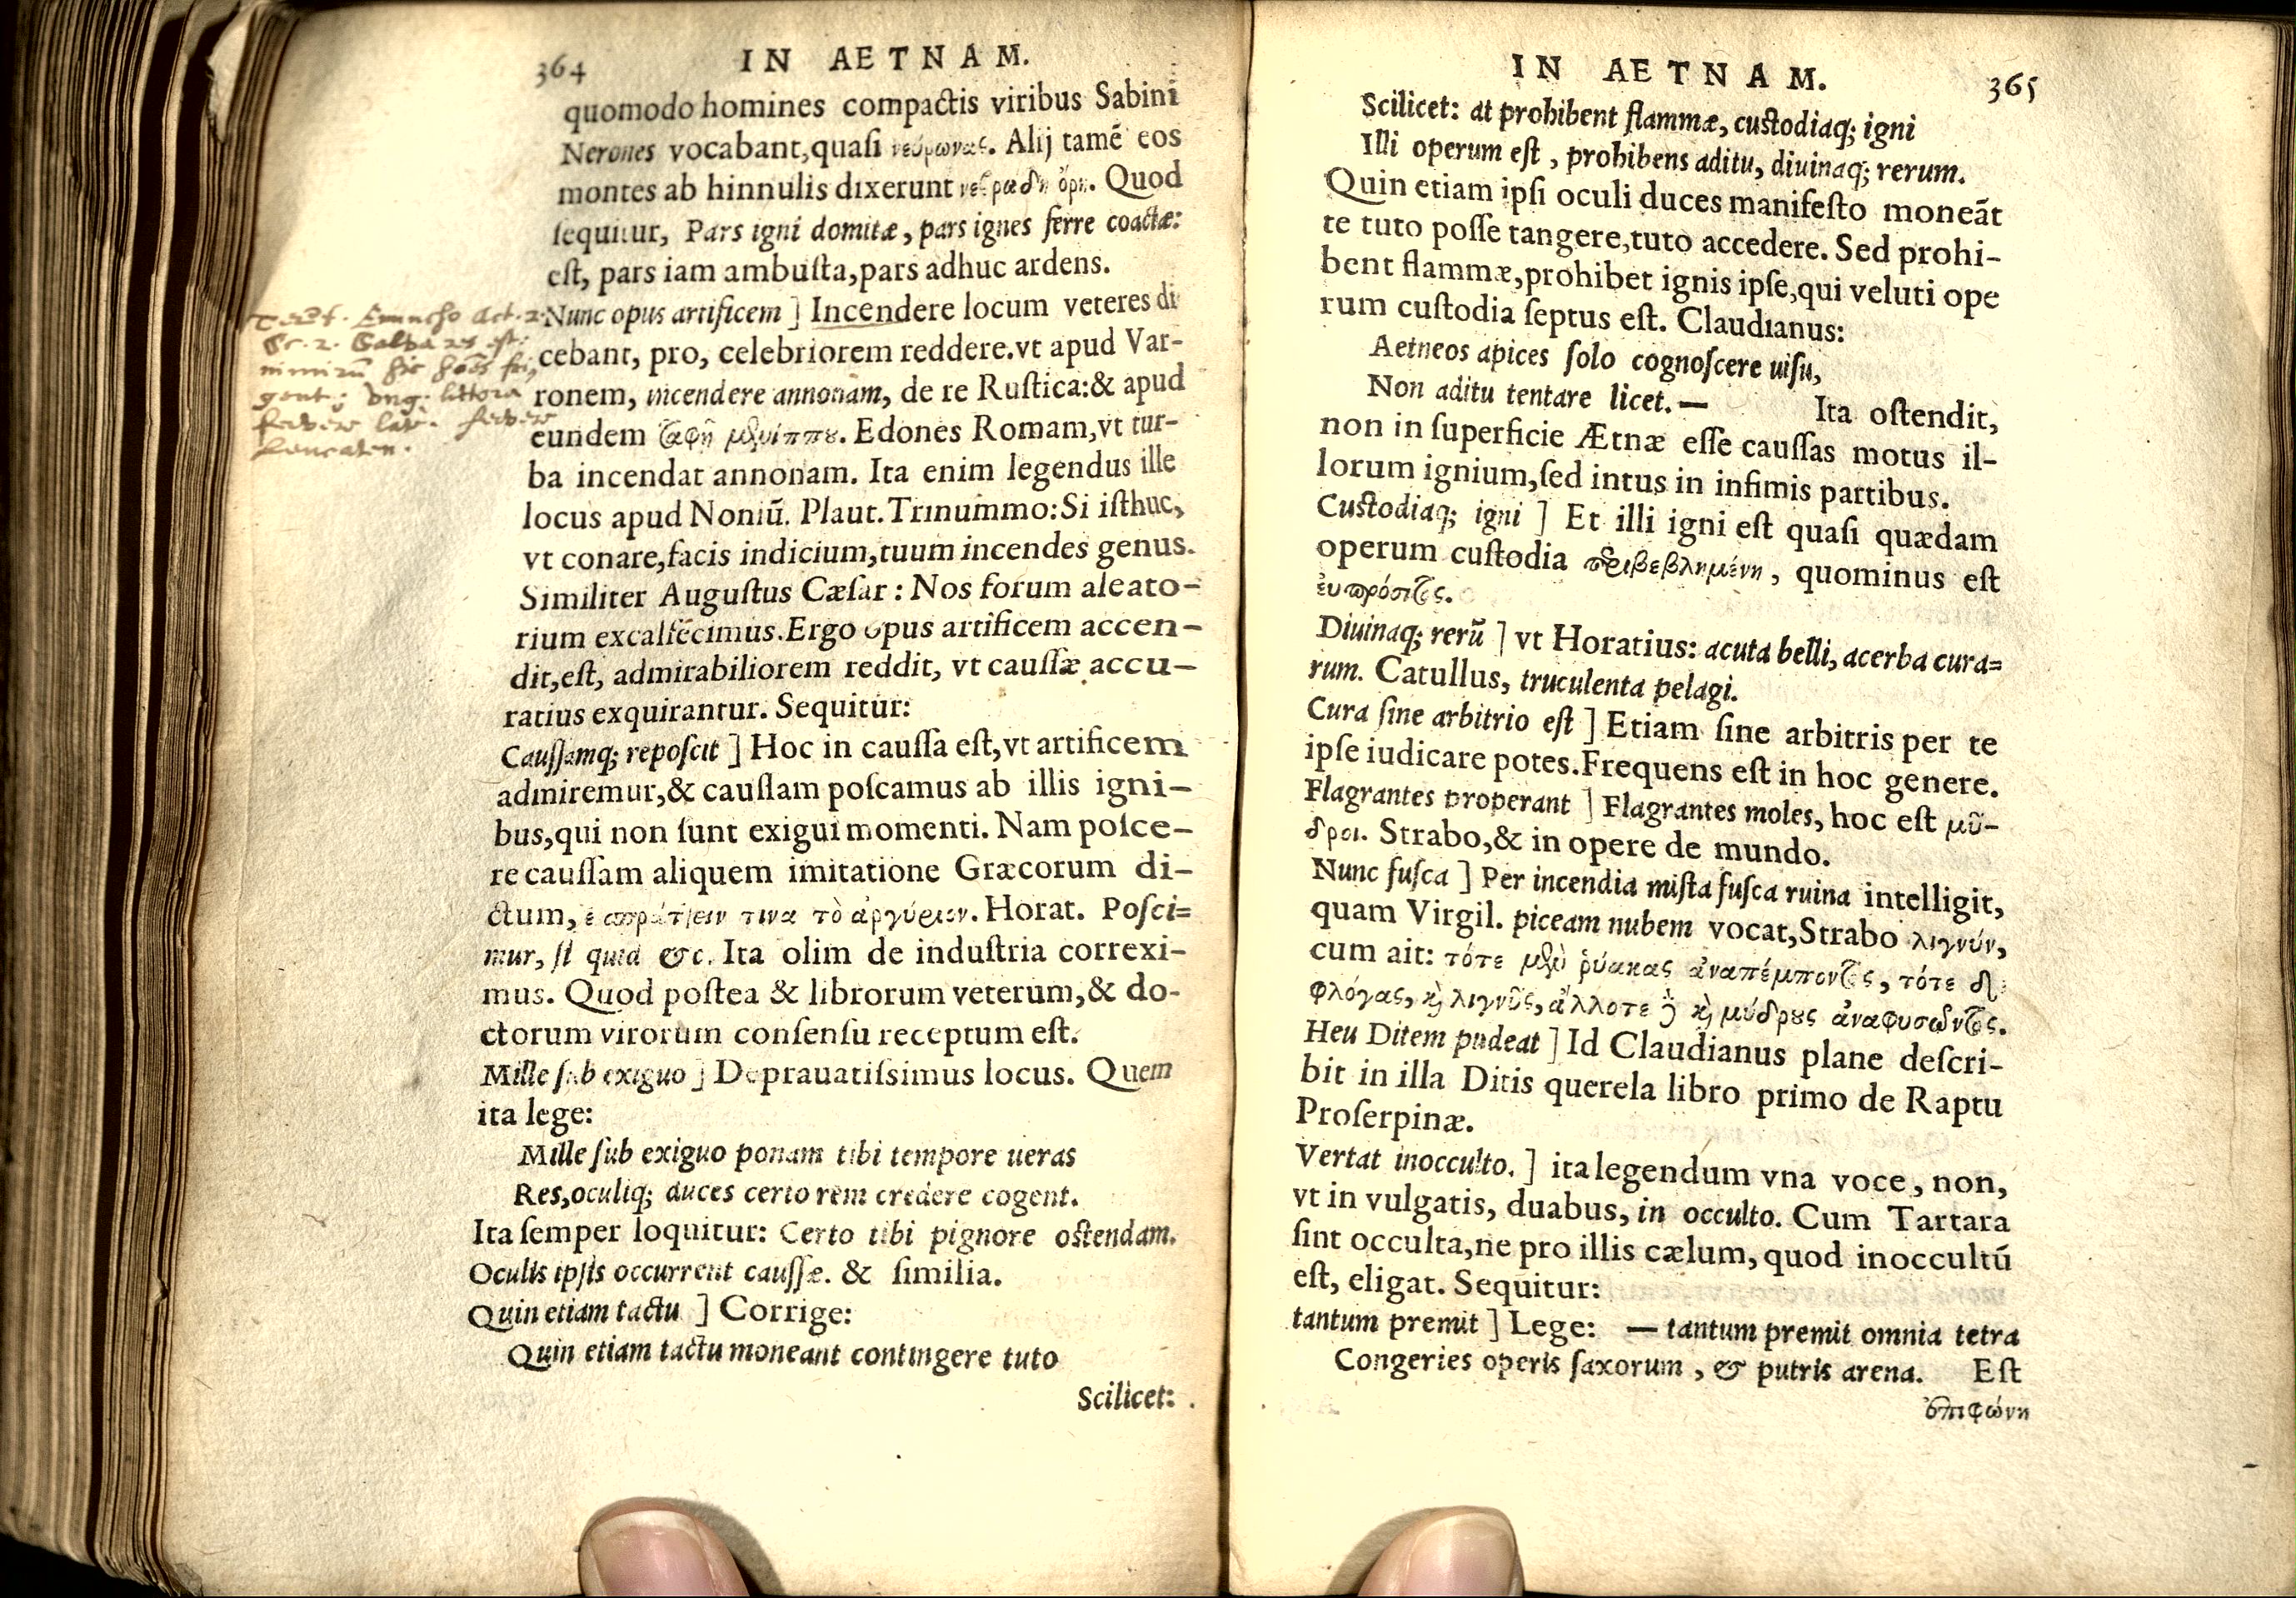 364 IN AETNAM.
quomodo homines compactis viribus Sabini
Nerones vocabant,quasi νεύρωνας. Alij tamē eos
montes ab hinnulis dixerunt ὄρη. Quod
sequitur, Pars igni domitæ, pars ignes ferre coactæ:
est, pars iam ambusta,pars adhuc ardens.
Nunc opus artificem ] Incendere locum veteres di
cebant, pro, celebriorem reddere.vt apud Var-
ronem, incendere annonam, de re Rustica:& apud
eundem ταφῆ μενίππου. Edones Romam,vt tur-
ba incendat annonam. Ita enim legendus ille
locus apud Noniū. Plaut.Trinummo:Si isthuc,
vt conare,facis indicium,tuum incendes genus.
Similiter Augustus Cæsar: Nos forum aleato-
rium excalfecimus.Ergo opus artificem accen-
dit,est, admirabiliorem reddit, vt caussæ accu-
ratius exquirantur. Sequitur:
Caussamq; reposcit ] Hoc in caussa est,vt artificem
admiremur,& caussam poscamus ab illis igni-
bus,qui non sunt exigui momenti. Nam posce-
re caussam aliquem imitatione Græcorum di-
ctum, τινα τὸ ἀργύριον. Horat. Posci=
mur, si quid &c. Ita olim de industria correxi-
mus. Quod postea & librorum veterum,& do-
ctorum virorum consensu receptum est.
Mille sub exiguo ] Deprauatissimus locus. Quem
ita lege:
Mille sub exiguo ponam tibi tempore ueras
Res,oculiq; duces certo rem credere cogent.
Ita semper loquitur: Certo tibi pignore ostendam.
Oculis ipsis occurrent caussæ. & similia.
Quin etiam tactu ] Corrige:
Quin etiam tactu moneant contingere tuto
Scilicet:
Eunucho Act. 2.
Sc. 2. Galba est:
nimirū hic hoēs fri,
gent; Virg. littora
feruere late. feruere
IN AETNAM. 365
Scilicet: at prohibent flammæ, custodiaq; igni
Illi operum est, prohibens aditu, diuinaq; rerum.
Quin etiam ipsi oculi duces manifesto moneāt
te tuto posse tangere,tuto accedere. Sed prohi-
bent flammæ,prohibet ignis ipse,qui veluti ope
rum custodia septus est. Claudianus:
Aetneos apices solo cognoscere uisu,
Non aditu tentare licet.— Ita ostendit,
non in superficie Ætnæ esse caussas motus il-
lorum ignium,sed intus in infimis partibus.
Custodiaq; igni ] Et illi igni est quasi quædam
operum custodia περιβεβλημένη, quominus est
ἐυπρόσιτος.
Diuinaq; rerū ] vt Horatius: acuta belli, acerba cura=
rum. Catullus, truculenta pelagi.
Cura sine arbitrio est ] Etiam sine arbitris per te
ipse iudicare potes.Frequens est in hoc genere.
Flagrantes properant ] Flagrantes moles, hoc est μῦ-
δροι. Strabo,& in opere de mundo.
Nunc fusca ] Per incendia mista fusca ruina intelligit,
quam Virgil. piceam nubem vocat,Strabo λιγνύν,
cum ait: τότε μὲν ῥύακας ἀναπέμποντες, τότε δὲ
φλόγας, καὶ λιγνῦς, ἄλλοτε δὲ καὶ μύδρους ἀναφυσῶντες.
Heu Ditem pudeat ] Id Claudianus plane descri-
bit in illa Ditis querela libro primo de Raptu
Proserpinæ.
Vertat inocculto. ] ita legendum vna voce, non,
vt in vulgatis, duabus, in occulto. Cum Tartara
sint occulta,ne pro illis cælum,quod inoccultū
est, eligat. Sequitur:
tantum premit ] Lege: — tantum premit omnia tetra
Congeries operis saxorum, & putris arena. Est
ἐπιφώνη